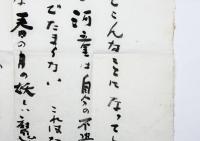 とこんなことになってし
河童は自分の不思
でたまらない
これはな
春の月の妖しい魔